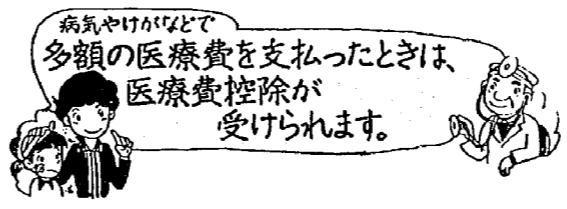 病気やけがなどで
多額の医療費を支払ったときは、
医療費控除が
受けられます。